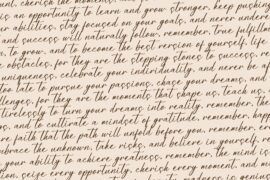 unt, cherish the moments,
is an opportunity to learn and grow stronger, keep pushing
er abilities, stay focused on your goals, and never under
and success will naturally follow, remember, true fulfillm
, to grow, and to become the best version of yourself, life
e obstacles, for they are the stepping stones to success,
uniqueness, celebrate your individuality, and never be af
too late to pursue your passions, chase your dreams, and
allenges, for they are the moments that shape us, teach us,
tirelessly to turn your dreams into reality, remember, the
s, and to cultivate a mindset of gratitude, remember, happ
ave faith that the path will unfold before you, remember, er
mbrace the unknown, take risks, and believe in yourself, re
your ability to achieve greatness, remember, the mind is
tion, seize every opportunity, cherish every moment, and m
to madness is genius